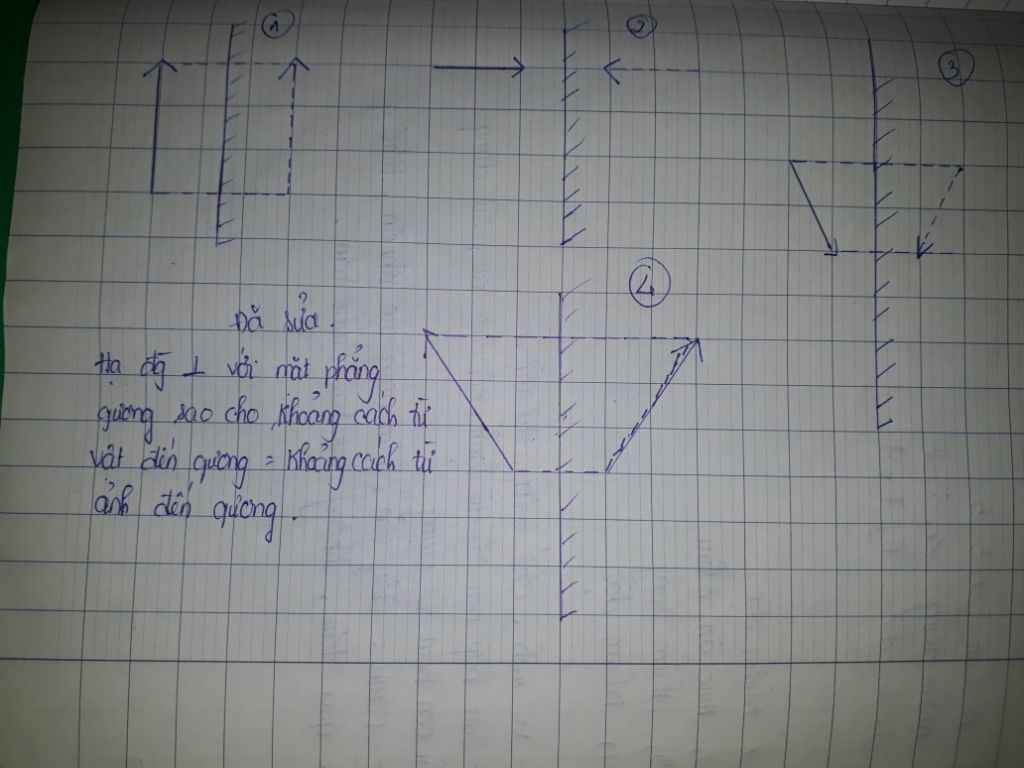 1
2
3
4
Đã sửa.
Hạ đg ⊥ với mặt phẳng
gương sao cho khoảng cách từ
vật đến gương = khoảng cách từ
ảnh đến gương.